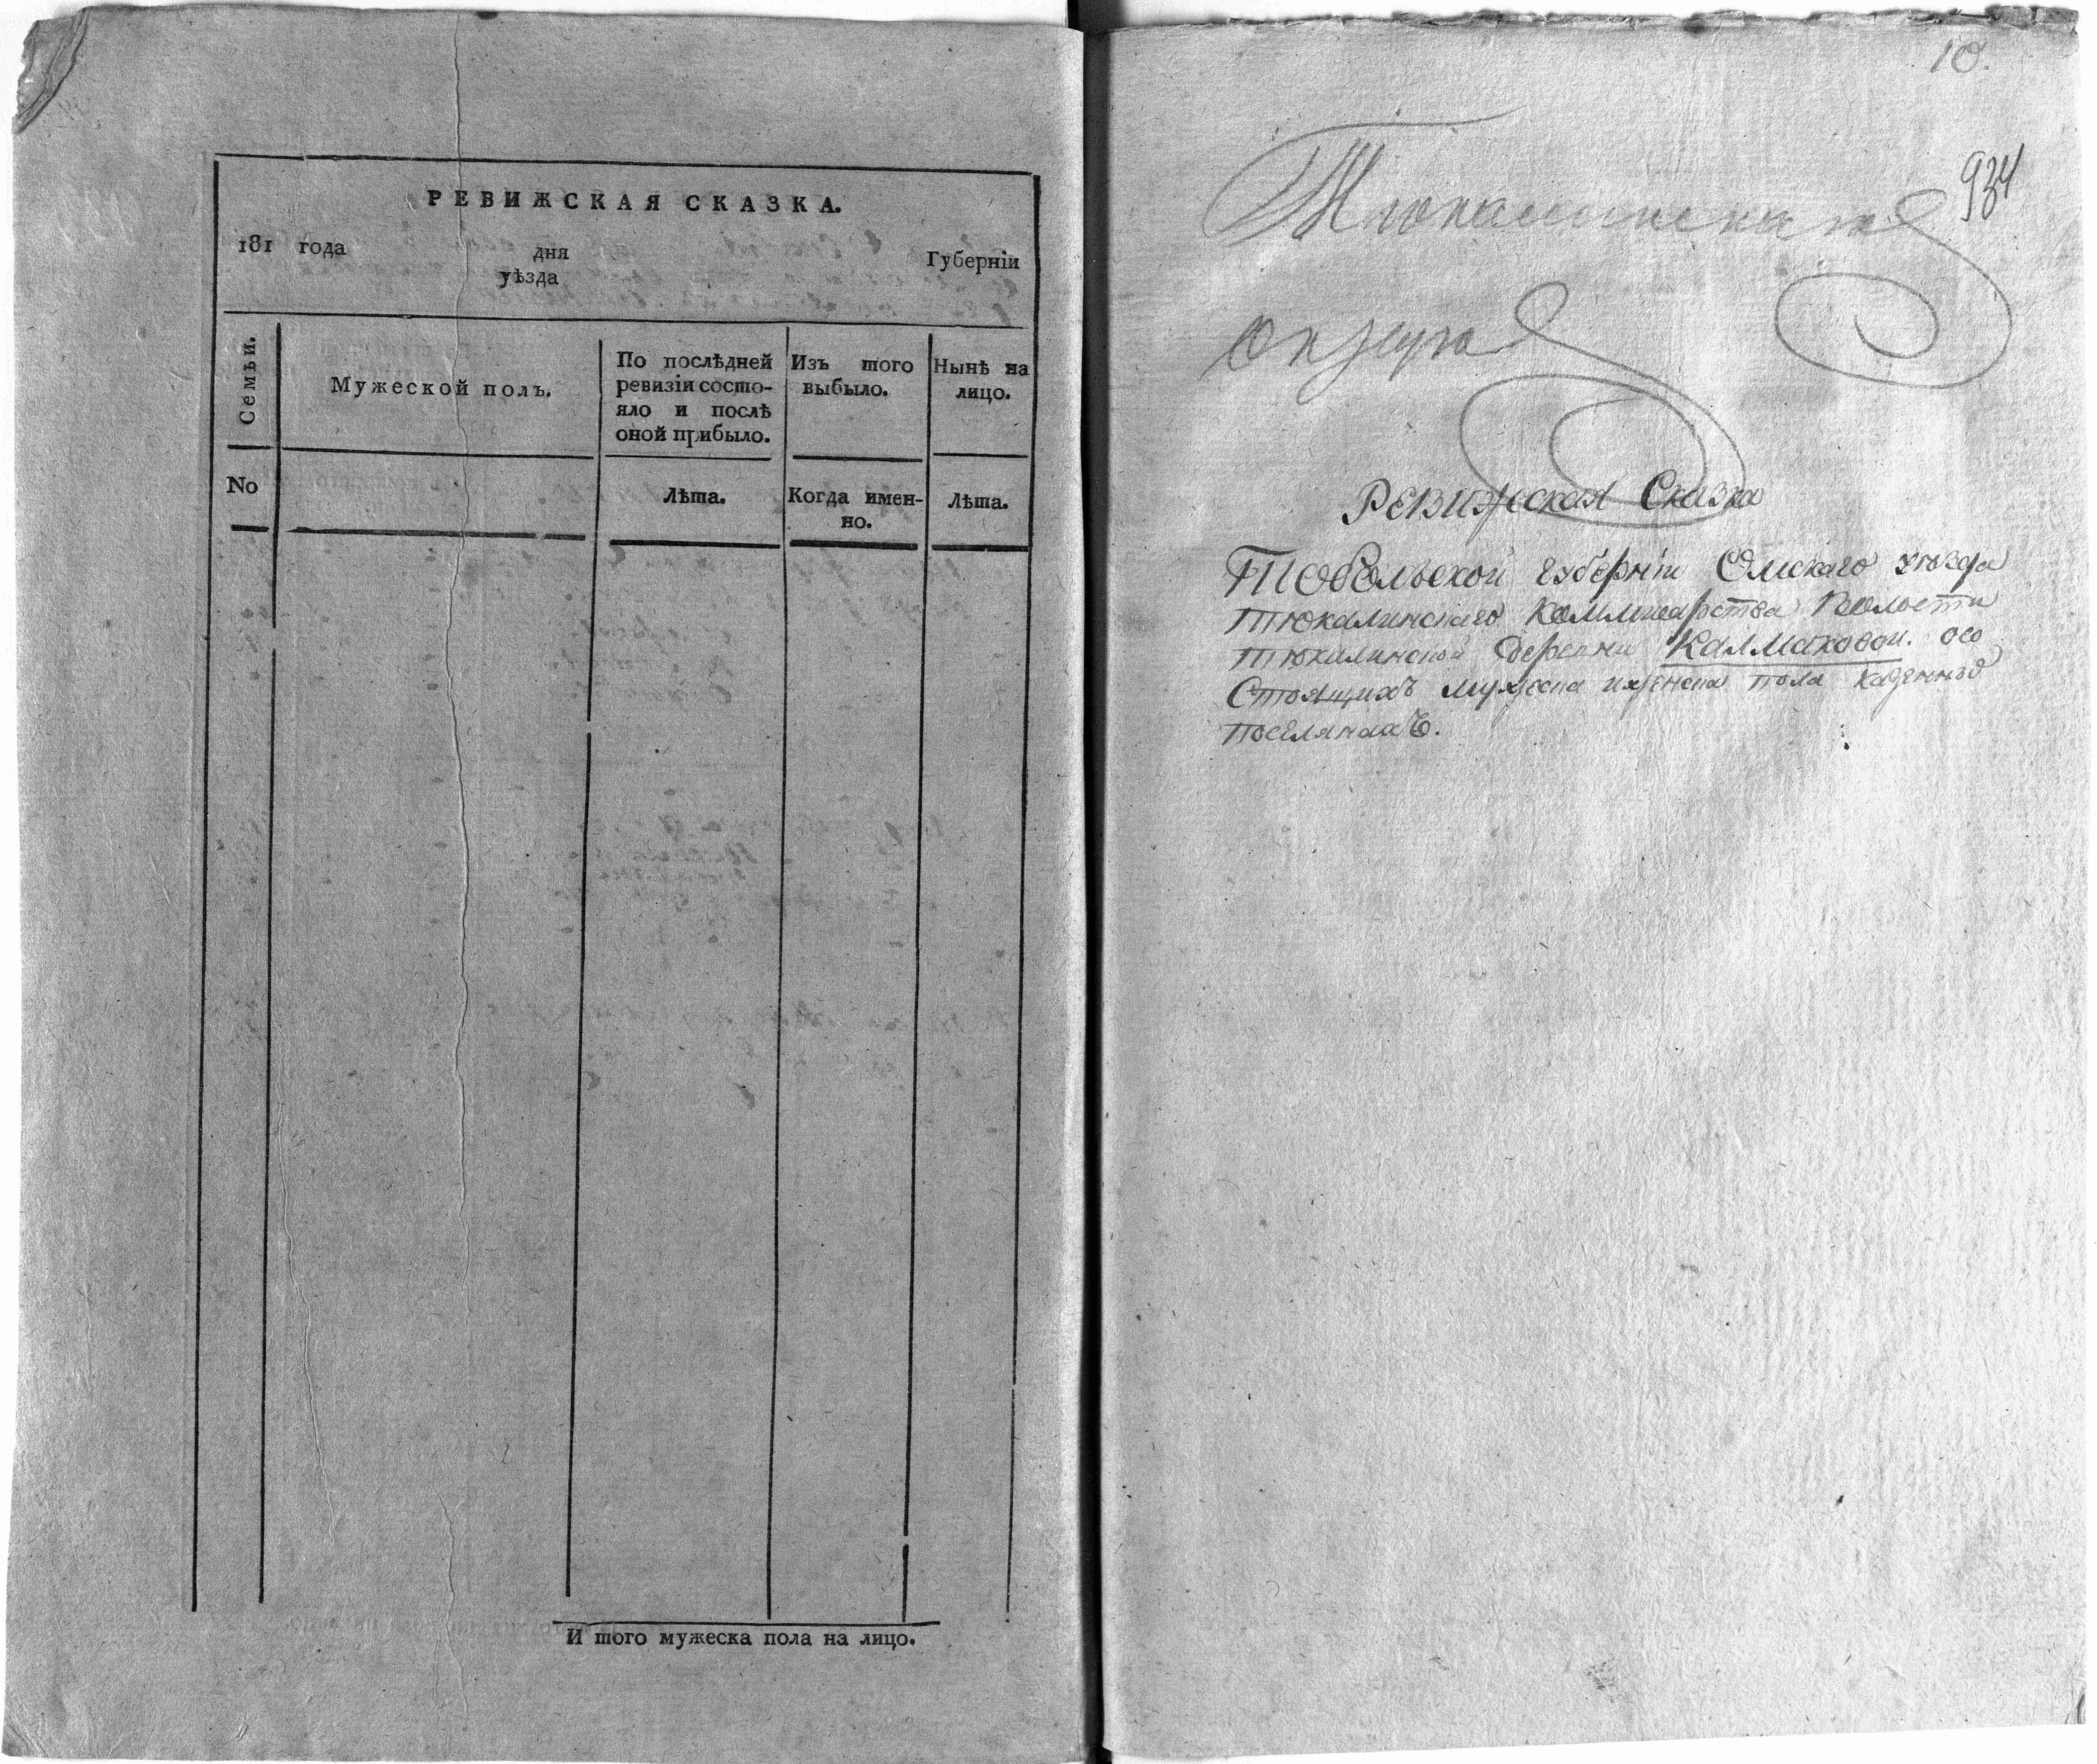 РЕВИЖСКАЯ СКАЗКА.
181 года дня Губерніи
уѣзда
Семьи.
Мужеской полъ.
По послѣдней
ревизіи состо-
яло и послѣ
оной прибыло.
Изъ того
выбыло.
Нынѣ на
лицо.
No
Лѣта.
Когда имен-
но.
Лѣта.
И того мужеска пола на лицо.
10.
934
Тюкалинскаго
округа
Ревижская Сказка
Тобольской губерніи Омскаго уѣзда
Тюкалинскаго Коммисарства Волости
Тюкалинской деревни Калмаковой. осо
Стоящихъ мужеска ижěнска пола казенныхъ
поселянахъ.